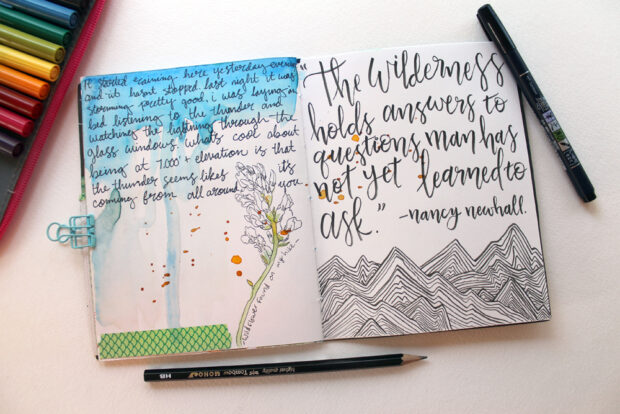 It started raining here yesterday evening
and it hasnt stopped. last night it was
storming pretty good. i was laying in
bed listening to the thunder and
watching the lightning through the
glass windows. whats cool about
being at 7,000' elevation is that
the thunder seems likes it's
coming from all around you
- wildflower found on my hike
"The Wilderness
holds answers to
questions man has
not yet learned to
ask."
-nancy newhall.
HB MONO Tombow higher quality